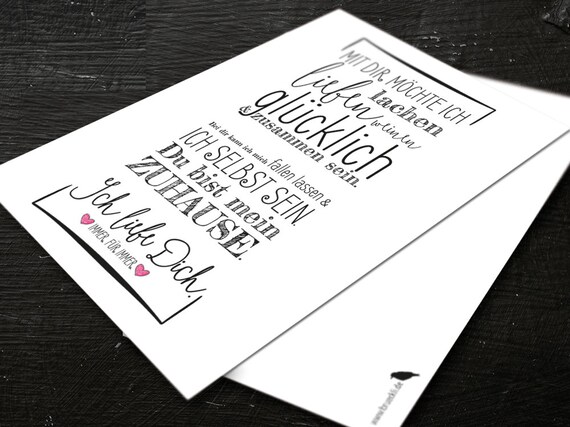 MIT DIR MÖCHTE ICH
lachen
lieben weinen
glücklich
& zusammen sein.
Bei dir kann ich mich fallen lassen &
ICH SELBST SEIN.
Du bist mein
ZUHAUSE.
Ich liebe Dich.
IMMER. FÜR. IMMER.